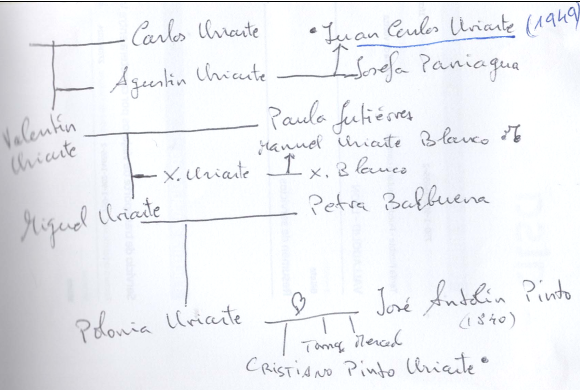 Carlos Uriarte • Juan Carlos Uriarte (1949)
Agustín Uriarte Josefa Paniagua
Valentín Uriarte Paula Gutiérres
Manuel Uriarte Blanco
X. Uriarte X. Blanco
Miguel Uriarte Petra Balbuena
Polonia Uriarte José Antolín Pinto
(1840)
Tomás Merced
CRISTIANO Pinto Uriarte •